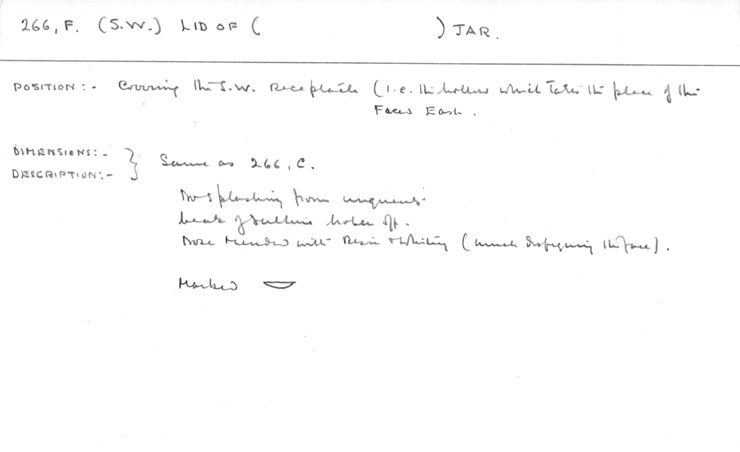 266, F. (S.W.) LID OF ( ) JAR.
POSITION :- Covering the S.W. Receptacle (i.e. the hollow which takes the place of the
Faces East.
DIMENSIONS :- } Same as 266, C.
DESCRIPTION :-
No splashing from unguents.
beak of vulture broken off.
Nose mended with Resin & Whiting (much disfiguring the face).
Marked